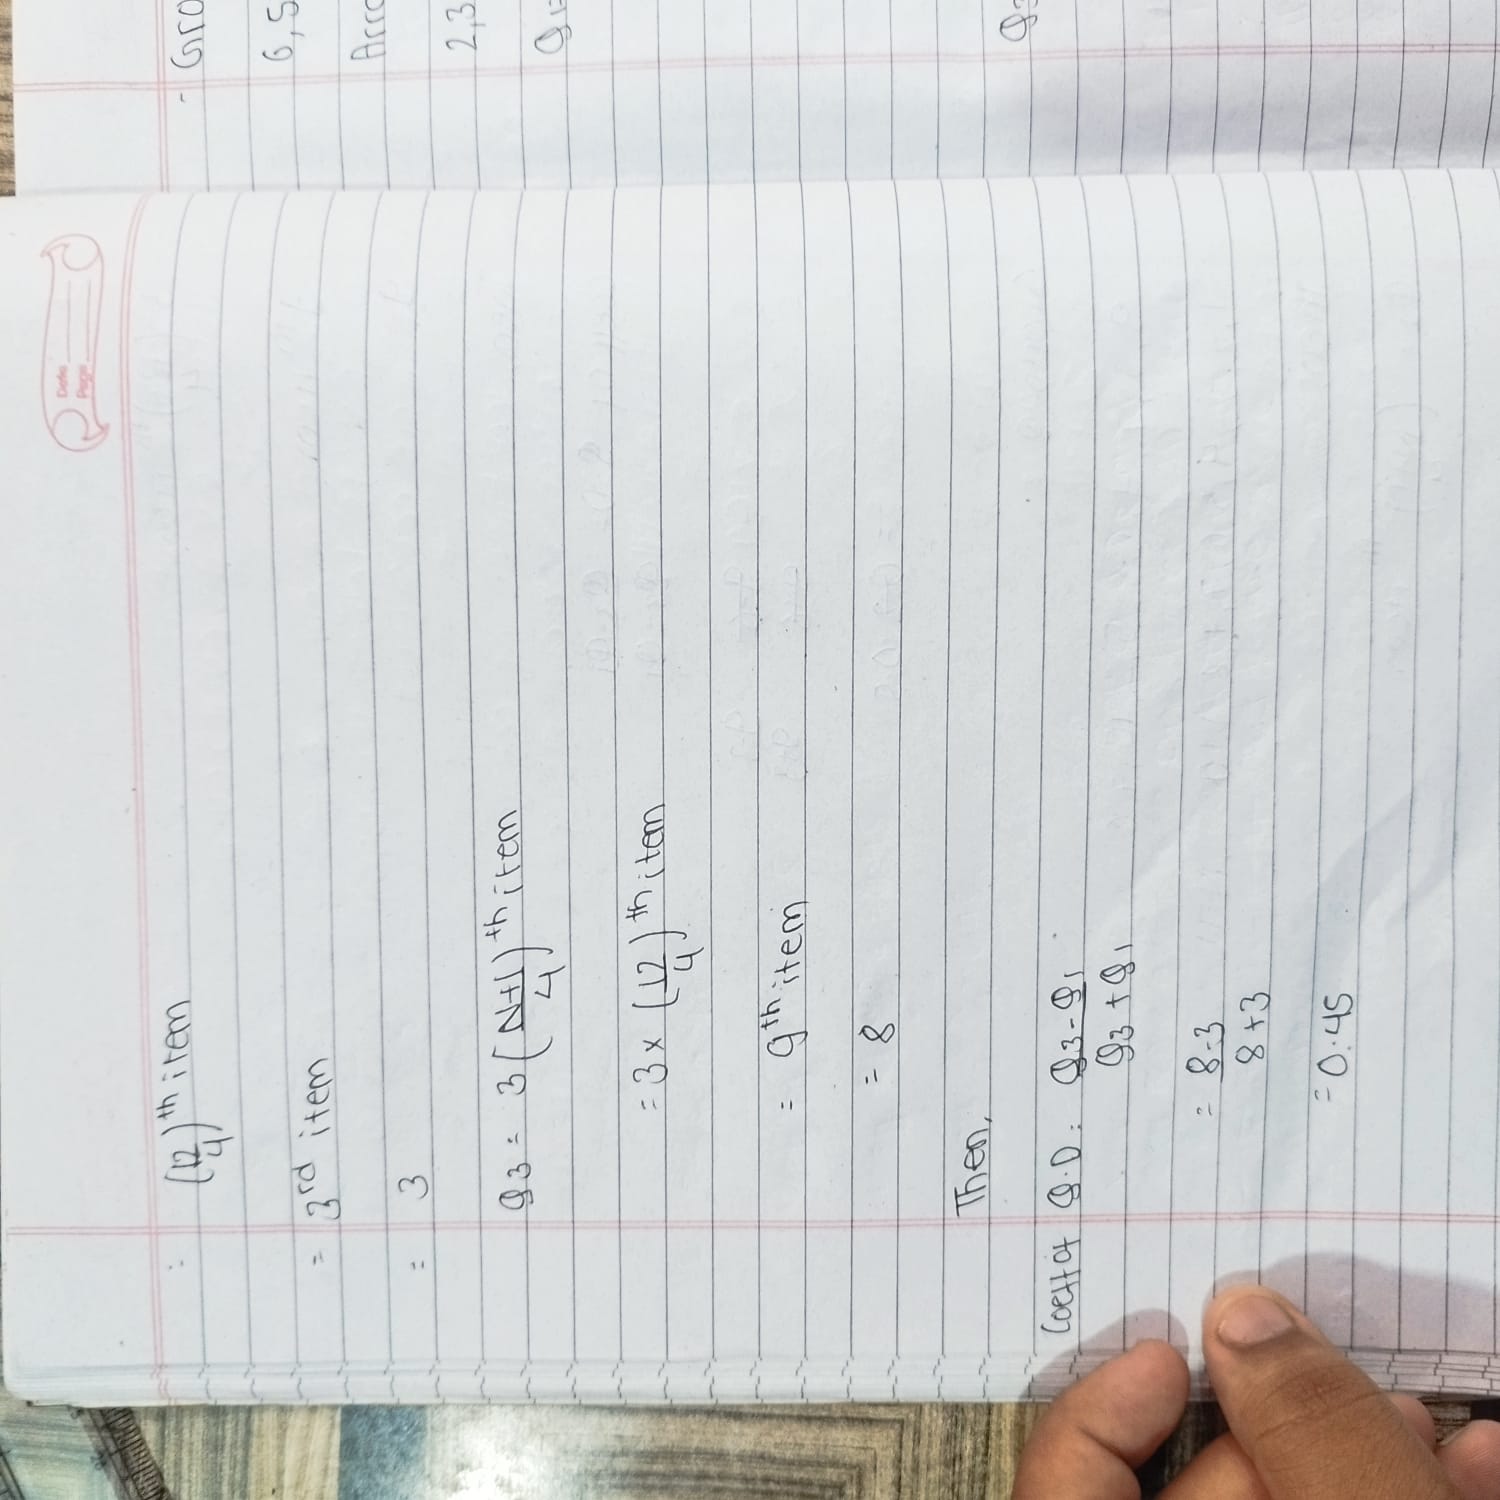 Date
Page
= (12/4)th item
= 3rd item
= 3
Q3 = 3(N+1/4)th item
= 3 x (12/4)th item
= 9th item
= 8
Then,
Coeff of Q.D = Q3 - Q1
Q3 + Q1
= 8-3
8+3
= 0.45
- Gro
6, 5
Arra
2,3
Q1=
Q3